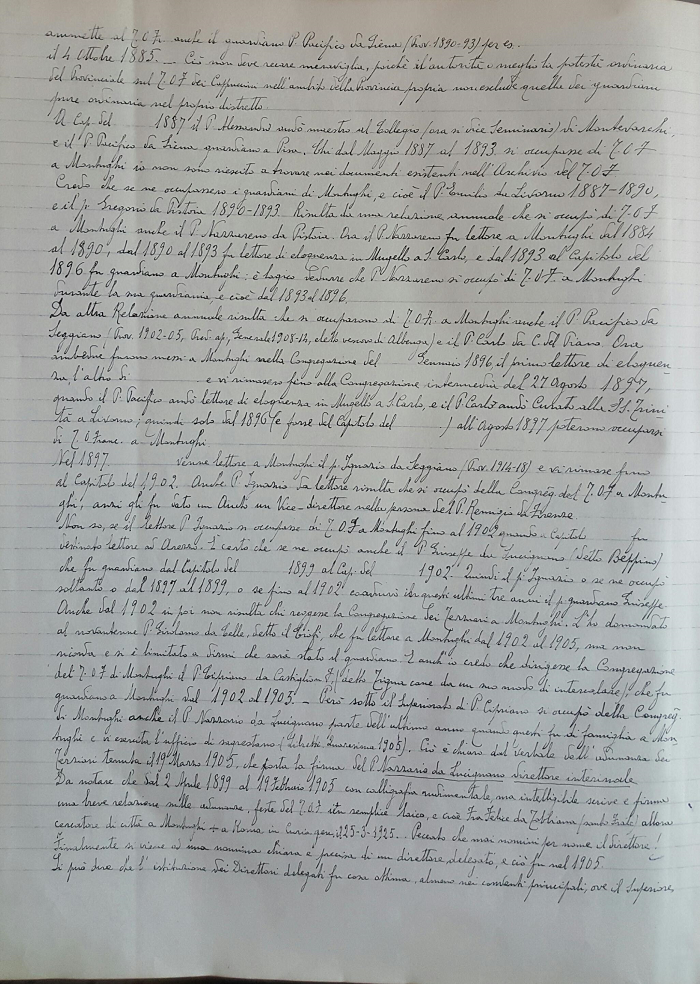 ammette al T.O.F. anche il guardiano P. Pacifico da Siena (Prov. 1890-93) per es.
il 4 Ottobre 1885. — Ciò non deve recare meraviglia, poichè l'autorità o meglio la potestà ordinaria
del Provinciale sul T.O.F. dei Cappuccini nell'ambito della Provincia propria non esclude quella dei guardiani
pure ordinaria nel proprio distretto.
A Cap. del 1887 il P. Alessandro andò maestro al Collegio (ora si dice Seminario) di Montevarchi,
e il P. Pacifico da Siena guardiano a Pisa. Chi dal Maggio 1887 al 1893 si occupasse di T.O.F.
a Montughi io non sono riuscito a trovare nei documenti esistenti nell'Archivio del T.O.F.
Credo che se ne occupassero i guardiani di Montughi, e cioè il P. Emilio da Livorno 1887-1890,
e il p. Gregorio da Pistoia 1890-1893. Risulta da una relazione annuale che si occupò di T.O.F.
a Montughi anche il P. Nazzareno da Pistoia. Ora il P. Nazzareno fu lettore a Montughi dal 1884
al 1890, dal 1890 al 1893 fu lettore di eloquenza in Mugello a S. Carlo, e dal 1893 al Capitolo del
1896 fu guardiano a Montughi: è logico dedurre che P. Nazzareno si occupò di T.O.F. a Montughi
durante la sua guardiania e cioè dal 1893 al 1896.
Da altra Relazione annuale risulta che si occuparono di T.O.F. a Montughi anche il P. Pacifico da
Seggiano (Prov. 1902-05, Pred. ap., Generale 1908-14, eletto vescovo di Albenga) e il P. Carlo da C. del Piano. Ora
ambedue furono messi a Montughi nella Congregazione del Gennaio 1896, il primo lettore di eloquen-
za, l'altro di e vi rimasero fino alla Congregazione intermedia del 27 Agosto 1897,
quando il P. Pacifico andò lettore di eloquenza in Mugello a S. Carlo, e il P. Carlo andò Curato alla SS. Trini-
tà a Livorno; quindi solo dal 1896 (e forse dal Capitolo del ) all'Agosto 1897 poterono occuparsi
di T.O. Franc. a Montughi.
Nel 1897 venne lettore a Montughi il p. Ignazio da Seggiano (Prov. 1914-18) e vi rimase fino
al Capitolo del 1902. Anche P. Ignazio da lettore risulta che si occupò della Congreg. del T.O.F. a Montu-
ghi, anzi gli fu dato un Vice-direttore nella persona del P. Remigio da Firenze.
Non so, se il lettore P. Ignazio si occupasse di T.O.F. a Montughi fino al 1902 quando a Capitolo fu
destinato lettore ad Arezzo. È certo che se ne occupò anche il P. Giuseppe da Lucignano (detto Beppino)
che fu guardiano dal Capitolo del 1899 al Cap. del 1902. Quindi il p. Ignazio o se ne occupò
soltanto o dal 1897 al 1899, o se fino al 1902 coadiuvò in questi ultimi tre anni il p. guardiano Giuseppe.
Anche dal 1902 in poi non risulta chi reggesse la Congregazione dei Terziari a Montughi. L'ho domandato
al novantenne P. Girolamo da Celle, detto il, che fu lettore a Montughi dal 1902 al 1905, ma non
ricorda e si è limitato a dirmi che sarà stato il guardiano. E anch'io credo che dirigesse la Congregazione
del T.O.F. di Montughi il P. Cipriano da Castiglion F. (detto da un suo modo di intercalare) che fu
guardiano a Montughi dal 1902 al 1905. — Però sotto il Superiorato di P. Cipriano si occupò della Congreg.
di Montughi anche il P. Nazzario da Lucignano parte dell'ultimo anno quando questi fu di famiglia a Mon-
tughi e vi esercitò l'ufficio di sagrestano (Quaresima 1905). Ciò è chiaro dal verbale dell'Adunanza dei
Terziari tenuta il 19 Marzo 1905, che porta la firma del P. Nazzario da Lucignano direttore interinale.
Da notare che dal 2 Aprile 1899 al 19 Febbraio 1905 con calligrafia rudimentale, ma intelligibile scrive e firma
una breve relazione sulle adunanze, feste del T.O.F. un semplice laico, e cioè Fra Felice da (santo Frate) allora
cercatore di città a Montughi + a Roma, in Curia gen., 25-3-1925. Peccato che mai nomini per nome il direttore!
Finalmente si viene ad una nomina chiara e precisa di un direttore delegato, e ciò fu nel 1905.
Si può dire che l'istituzione dei Direttori delegati fu cosa ottima, almeno nei conventi principali, ove il Superiore,